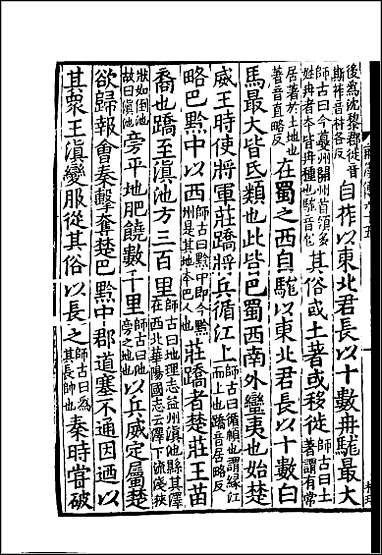 後爲沈黎郡徙音
斯莋音材各反
自莋以東北君長以十數冉駹最大
師古曰今夔州開州首領多
姓冉者本皆冉種也駹音尨
其俗或土著或移徙
師古曰土
著謂有常
居著於土地也
著音直略反
在蜀之西自駹以東北君長以十數白
馬最大皆氐類也此皆巴蜀西南外蠻夷也始楚
威王時使將軍莊蹻將兵循江上
師古曰循順也謂緣江
而上也蹻音居略反
略巴黔中以西
師古曰黔中即今黔
州是其地本巴人也
莊蹻者楚莊王苗
裔也蹻至滇池方三百里
師古曰地理志益州滇池縣其澤
在西北華陽國志云澤下流淺狹
狀如倒池
故曰滇池
旁平地肥饒數千里
師古曰池
旁之地也
以兵威定屬楚
欲歸報會秦擊奪楚巴黔中郡道塞不通因迺以
其衆王滇變服從其俗以長之
師古曰爲
其長帥也
秦時嘗破